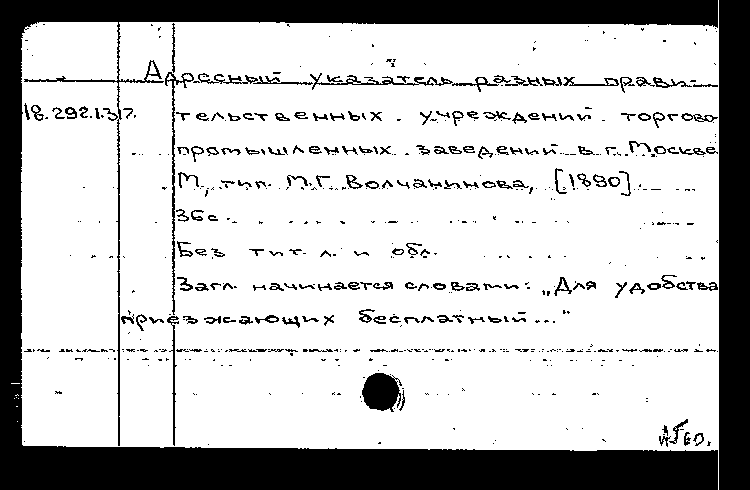 Адресный указатель разных прави-
18.292.1.317. тельственных . учреждений . торгово
промышленных . заведений в г. Москве
М, тип. М.Г. Волчанинова, [1890].
36с.
Без тит. л. и обл.
Загл. начинается словами: „Для удобства
приезжающих бесплатный..."